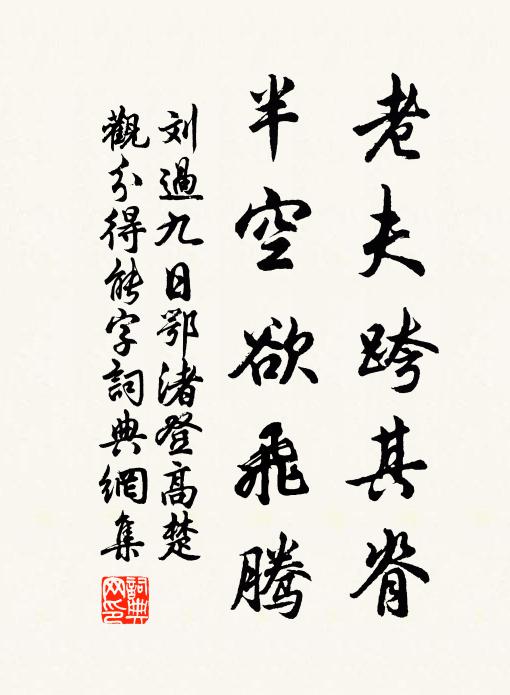 老夫跨其脊
半空欲飛騰
刘過九日鄂渚登高楚
觀分得能字詞典網集
詞典网印